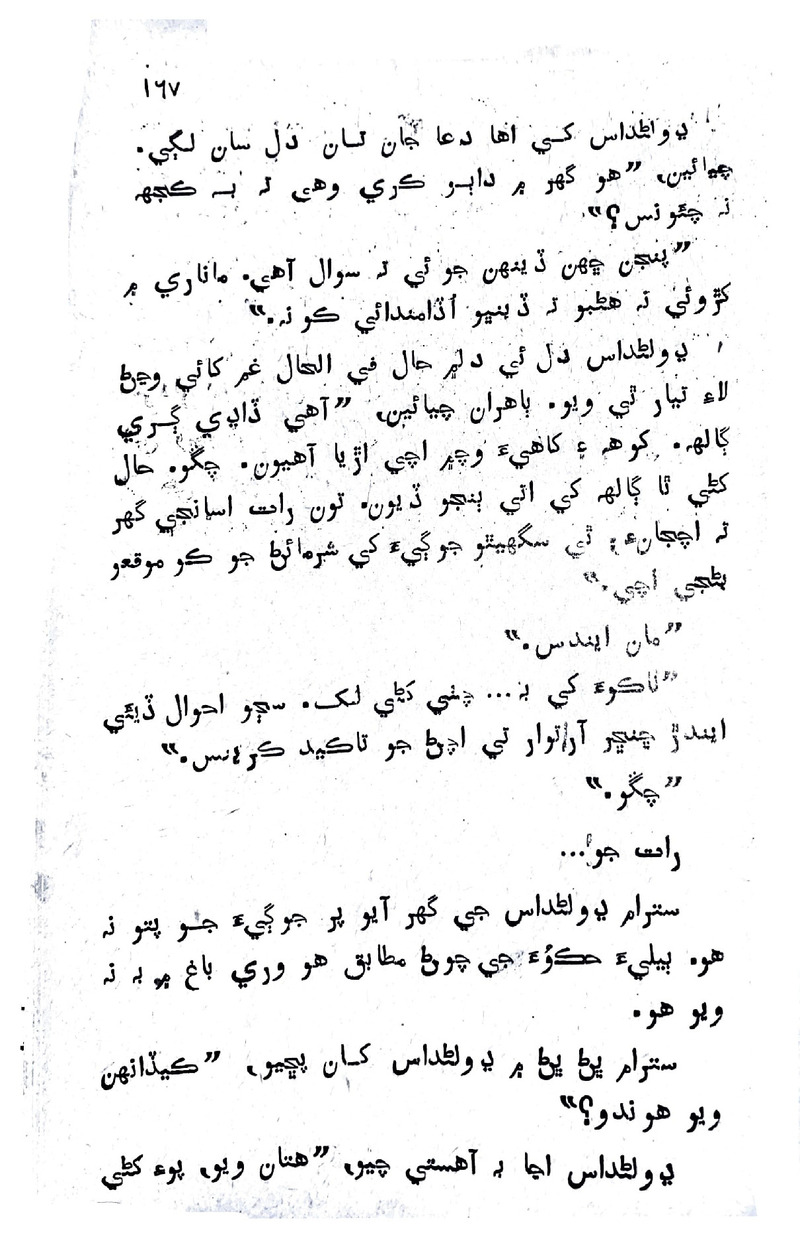 ١٦٧
ڍولڻداس کــي اها دعا ڄان تــان دل سان لڳي.
چيائين، ”هو گهر ۾ دابــو ڪري وهي تہ بــہ ڪجهہ
نہ چئونس؟“
”پنجن ڇهن ڏينهن جو ئي تہ سوال آهي. ماناري ۾
کڙوئي نہ هڻبو تہ ڏينڀو اُڏامندائي ڪونہ.“
ڍولڻداس دل ئي دلہ۾ حال في الحال غم کائي وڃڻ
لاءِ تيار ٿي ويو. ٻاهران چيائين، ”آهي ڏاڍي ڳــري
ڳالهہ. کوهہ ۽ کاهيءَ وچ۾ اچي اڙيا آهيون. چڱو. حال
کڻي ٿا ڳالهہ کي اتي ٻنجو ڏيون. تون رات اسانجي گهر
تہ اچجانءِ، ٿي سگهيٿو جوڳيءَ کي شرمائڻ جو ڪو موقعو
بڻجي اچي.“
”مان ايندس.“
”ٺاڪوءَ کي بہ... چٺي کڻي لک. سڄو احوال ڏيئي
ايندڙ ڇنڇر آرتوار تي اچڻ جو تاڪيد ڪرينس.“
”چڱو.“
رات جو...
سنترام ڍولڻداس جي گهر آيو پر جوڳيءَ جــو پتو نہ
هو. ٻيليءَ حڪوُءَ جي چوڻ مطابق هو وري باغ ۾ بہ نہ
ويو هو.
سنترام ڀڻ ڀڻ ۾ ڍولڻداس کــان پڇيو، ”ڪيڏانهن
ويو هوندو؟“
ڍولڻداس اڃا بہ آهستي چيو، ”هتان ويو، پوءِ کڻي